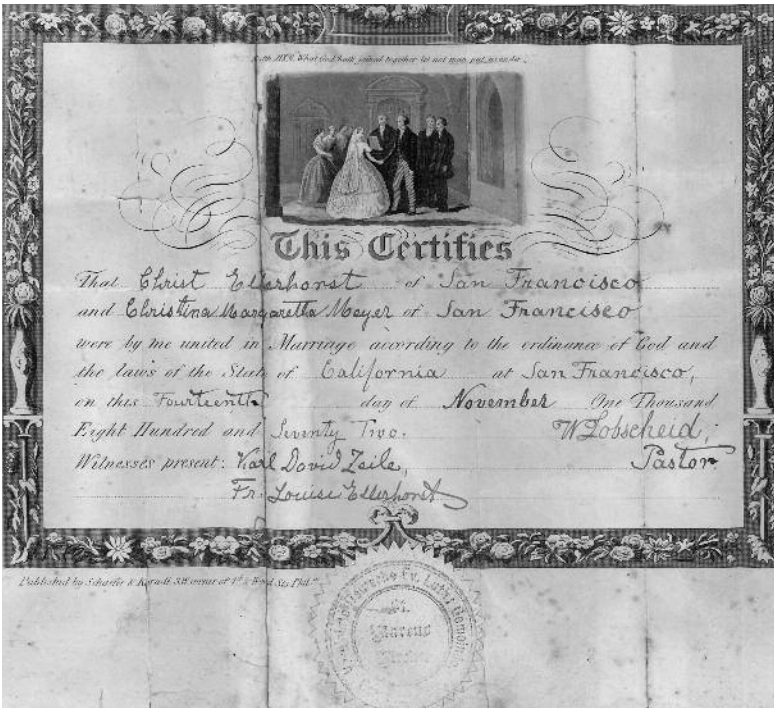 What God hath joined together let not man put asunder.
This Certifies
That Christ Ellerhorst of San Francisco
and Christina Margaretta Meyer of San Francisco
were by me united in Marriage according to the ordinance of God and
the laws of the State of California at San Francisco,
on this Fourteenth day of November One Thousand
Eight Hundred and Seventy Two. W Lobscheid,
Witnesses present: Karl David Zeile, Pastor
Fr. Louise Ellerhorst
Published by Schaefer & Koradi, S.W. corner of 4th & Wood Sts Phila
Deutsche Ev. Luth. Gemeinde
St.
Marcus